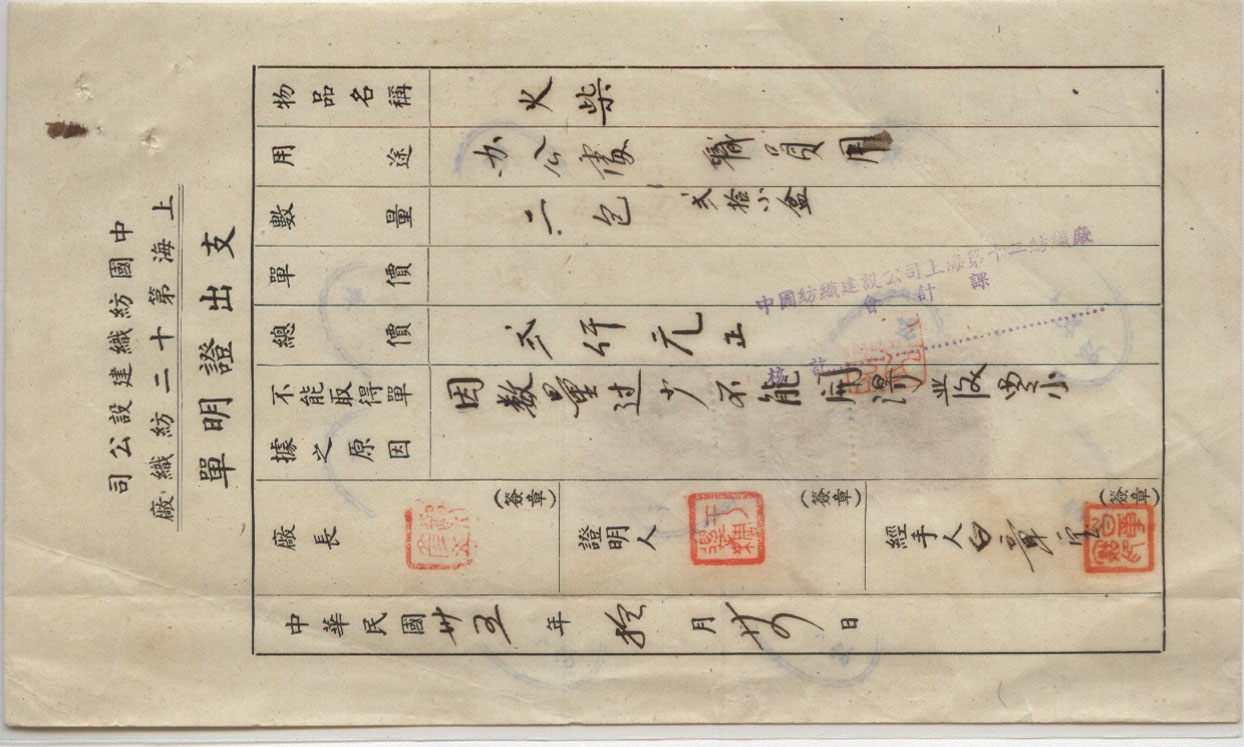 中國紡織建設公司
上海第十二紡織廠
支出證明單
物品名稱 火柴
用途 办公處 職員用
數量 二包 弍拾小盒
單價
總價 弍仟元正
不能取得單據之原因 因数量过少不能
廠長 (簽章)
證明人 (簽章)
經手人 (簽章)
中華民國卅五年拾月 日
中國紡織建設公司上海第十二紡織廠
會計課